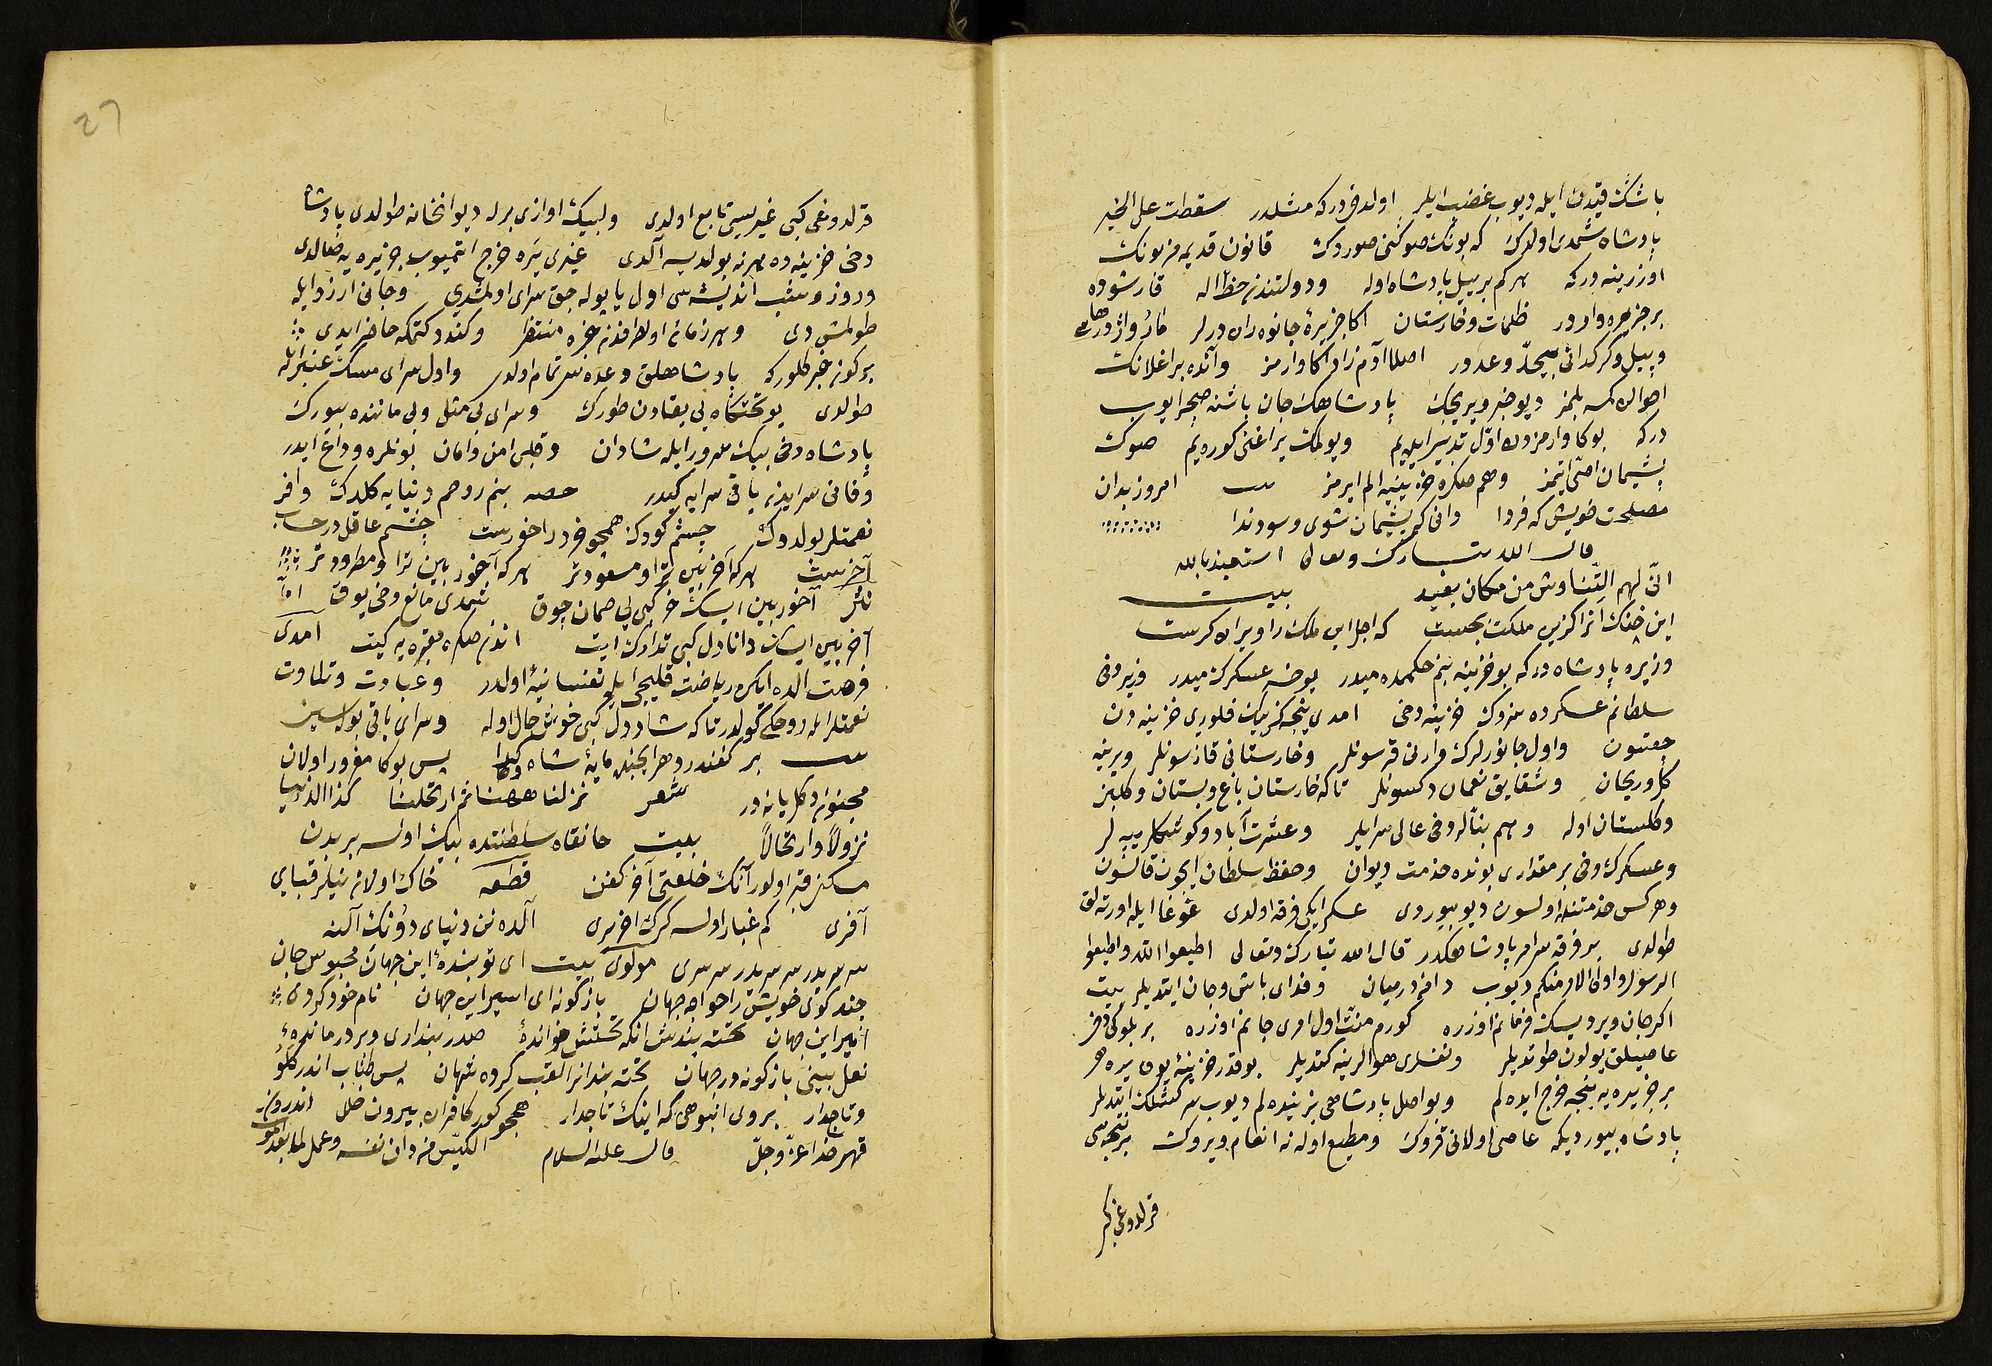 باشك قیدن ایله دیوب غضب ایلر اولدر که مثلدر سقطت علی الخبیر
پادشاه شمدی اولرك که بونك صوكنی صوردك قانون قدیم بونك
اوزرینه در که هر کم بر ییل پادشاه اوله و دولتندن حظ اله قارشوده
بر جزیره وارد ر ظلمات و خارستان اكا جزیرۀ جانوران دیرلر مار و اژدرهای
و پیل و کرکدانی بیحد و عددر اصلا آدم زاد اكا وارمز و آنده براغلانك
احوالن کمسه بلمز دیو خبر ویریجك پادشاهك جان باشنه صچرایوب
در که بوكا وارمزدن اول تدبیر ایلیه یم و بو ملك یراغنی كوره یم صوكك
پشیمان اصی ایتمز و هم صكره خزینه یه الم ایرمز امروز بدان
مصلحت خویش که فردا دانی که پشیمان شوی و سود ندارد
قال الله تبارك وتعالی استعیذ بالله
انّی لهم التناوش من مكان بعید بیت
این جنك انرا كزین ملكت بجست که اجل این ملك را ویران كرست
وزیره پادشاه در که بو خزینه بنم حكممده میدر یوخسه عسكرك میدر وزیر دخی
سلطانم عسكر ده سزوك خزینه دخی امدی نیجه كز بیك فلوری خزینه دن
چقسون و اول جانورلرك وارن قرسونلر و خارستانی قازسونلر و یرینه
كل و ریحان و شقایق نعمان دكسونلر تاكه خارستان باغ و بستان و كلبن
و گلستان اوله و هم بنالر دخی عالی سرایلر و عشرت آباد و كوشكلر یپه لر
و عسكرك دخی بر مقداری بونده خدمت دیوان و حفظ سلطان ایچون قالسون
و هر كس خدمتنده اولسون دیو بیوردی عسكر ایكی فرقه اولدی غوغا ایله اورته لق
طولدی بر فرقه سرامر پادشاهكدر قال الله تبارك وتعالی اطیعوا الله واطیعوا
الرسول و اولی الامر منكم دیوب در میان و فدای باش و جان ایتدیلر بیت
اكر جان ویر دیسك فرمانم اوزره كورم منت اول امری جانم اوزره بر بلوكی دخی
عاصیلق یولون طوتدیلر و نفسلری هوالرینه كتدیلر بو قدر خزینه یی یوق یره هر
بر جزیره یه نیجه خرج ایده لم و بو اصل پادشاهی بز نیده لم دیوب سركشلك ایتدیلر
پادشاه بیوردیكه عاصی اولانی قروك و مطیع اوله نه انعام ویروك بر نیجه سی
قرلدوغی كبی
27
قرلدوغی كبی غیریسی تابع اولدی و لبیك اوازی برله دیوانخانه طولدی پادشاه
دخی خزینه ده هر نه بولدیسه آلدی غیری یره خرج اتمیوب جزیره یه صالدی
و روز و شب اندیشه سی اول یاپوله جق سرای اولمشدی و جانی ارزو ایله
طولمش دی و هر زمان اول طرفدن خبره منتظر و كندو كتمكه حاضر ایدی
بر كون خبر كلور كه پادشاهلق وعده سی تمام اولدی و اول سرای مسك عنبر ایله
طولدی بو تختكاه بی بقادن طورك و سرای بی مثل و بی مانندده بیورك
پادشاه دخی بیك سرور ایله شادان و قلبی امن و امان بونلره وداع ایدر
و فانی سرایدن باقی سرایه كیدر حصه بنم روحم دنیایه كلدك وافر
نعمتلر بولدوك چشم كودك همچو خر در اخورست چشم عاقل در حساب
آخرست هر كه آخر بین ترا و مسعود تر هر كه آخور بین ترا و مطرود تر
نثر آخور بین ایسك خر كبی بی صمان چوق شمدی مانع دخی یوق اما
آخر بین ایسك دانا دل كبی تدارك ایت اندن صكره مقبره یه كیت امدی
فرصت الده ایكن ریاضت قلیچی ایله نفسانیه اولدر و عبادت و تلاوت
نعمتلر ایله روحكی كولدر تاكه شاد دل كبی خوش حال اوله و سرای باقی بوله سین
بر كفندر دهرایچنده مایۀ شاه و كدا پس بوكا مغرور اولان
مجنونه دكل یا نه در شعر نزلنا ههنا ثم ارتحلنا كذا الدنیا
نزولاً وارتحالاً بیت خانقاه سلطنتده بیك اولسه بر بدن
مسكن قبر اولور آنك خلعتی آخر كفن قطعه خاك اولانه نیلر قبای
آفری كم غبار اولسه كرك اخری آلده نن دنیای دونك آلنه
سر سر یدر سر سر یدر سر سری مولوی بیت ای تو بندۀ این جهان محبوس جان
چند كویی خویش را خواجه جهان باز كونه ای اسیر این جهان نام خود كردی
امیر این جهان تخته بندست انكه تختش خواندۀ صدر پنداری و بر در ماندۀ
نعل بینی باز كونه در جهان تخته بندانرا لقب كرده شهان پس طناب اندر كلو
و تاج دار بر وی انبوهی كه اینك تاجدار همچو كور كافران بیرون حلل اندرون
قهر خدا عزّ وجلّ قال علیه السلام الكیّس من دان نفسه وعمل لما بعد الموت